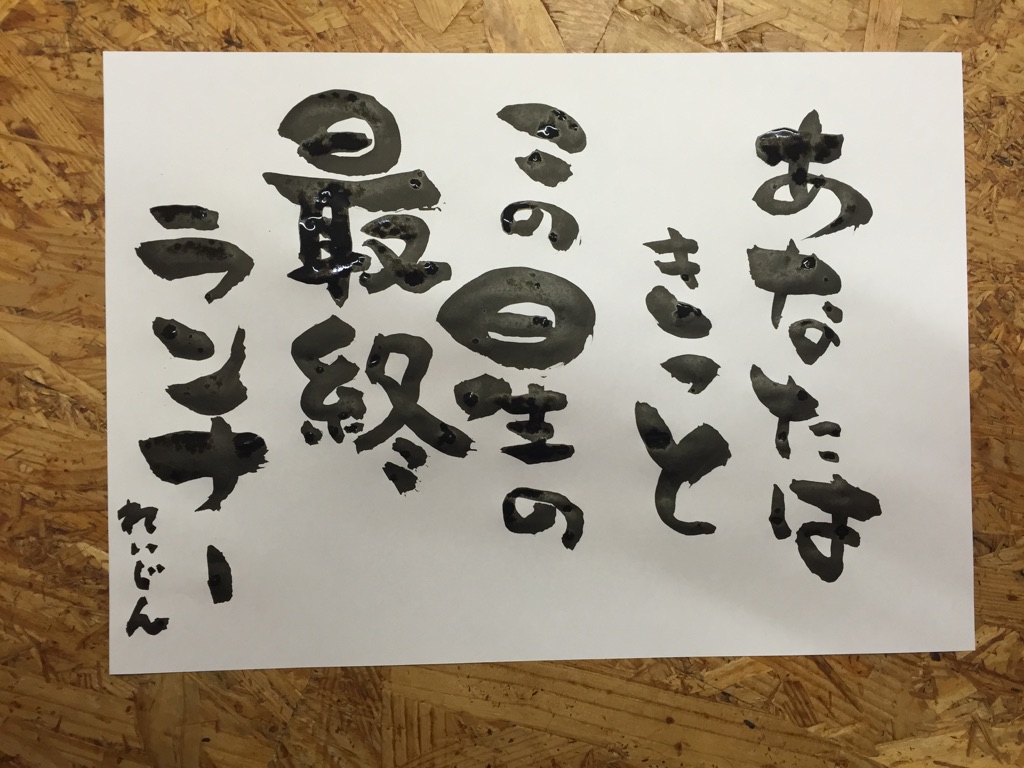 あなたは
きっと
この星の
最終
ランナー
れいじん